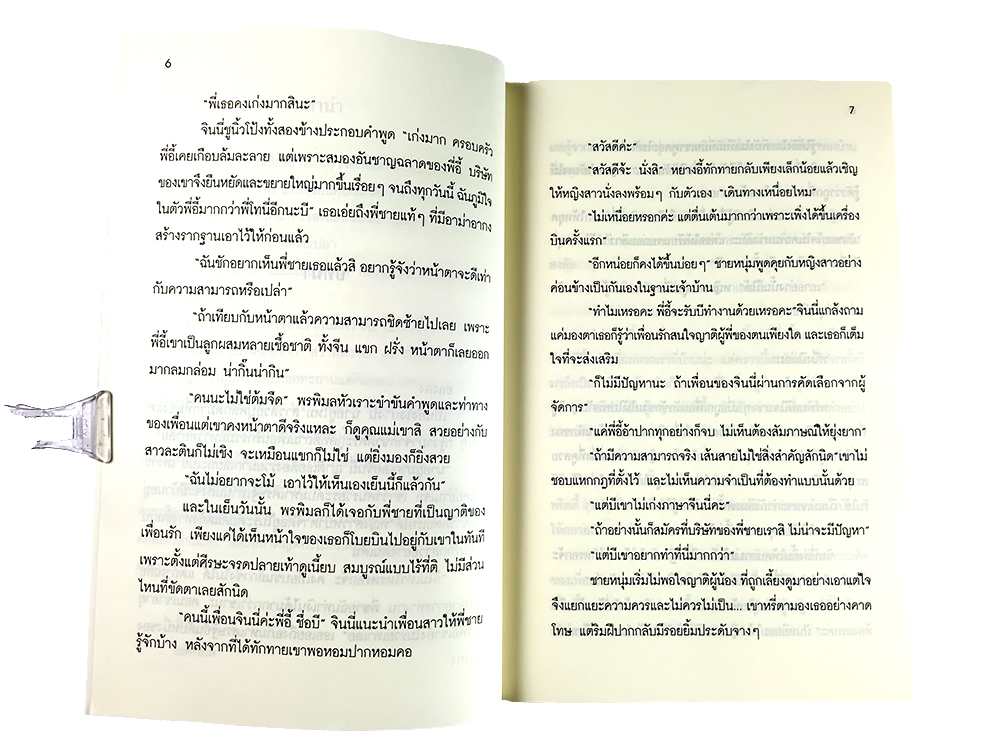 6
“พี่เธอคงเก่งมากสินะ”
จินนี่ชูนิ้วโป้งทั้งสองข้างประกอบคำพูด “เก่งมาก ครอบครัว
พี่อี้เคยเกือบล้มละลาย แต่เพราะสมองอันชาญฉลาดของพี่อี้ บริษัท
ของเขาจึงยืนหยัดและขยายใหญ่มากขึ้นเรื่อยๆ จนถึงทุกวันนี้ ฉันภูมิใจ
ในตัวพี่อี้มากกว่าพี่โทนี่อีกนะบี” เธอเอ่ยถึงพี่ชายแท้ๆ ที่มีอาม่าอากง
สร้างรากฐานเอาไว้ให้ก่อนแล้ว
“ฉันชักอยากเห็นพี่ชายเธอแล้วสิ อยากรู้จังว่าหน้าตาจะดีเท่า
กับความสามารถหรือเปล่า”
“ถ้าเทียบกับหน้าตาแล้วความสามารถชิดซ้ายไปเลย เพราะ
พี่อี้เขาเป็นลูกผสมหลายเชื้อชาติ ทั้งจีน แขก ฝรั่ง หน้าตาก็เลยออก
มากลมกล่อม น่ากิ๊นน่ากิน”
“คนนะไม่ใช่ต้มจืด” พรพิมลหัวเราะขำขันคำพูดและท่าทาง
ของเพื่อนแต่เขาคงหน้าตาดีจริงแหละ ก็ดูคุณแม่เขาสิ สวยอย่างกับ
สาวละตินก็ไม่เชิง จะเหมือนแขกก็ไม่ใช่ แต่ยิ่งมองก็ยิ่งสวย
“ฉันไม่อยากจะโม้ เอาไว้ให้เห็นเองเย็นนี้ก็แล้วกัน”
และในเย็นวันนั้น พรพิมลก็ได้เจอกับพี่ชายที่เป็นญาติของ
เพื่อนรัก เพียงแค่ได้เห็นหน้าใจของเธอก็โบยบินไปอยู่กับเขาในทันที
เพราะตั้งแต่ศีรษะจรดปลายเท้าดูเนี้ยบ สมบูรณ์แบบไร้ที่ติ ไม่มีส่วน
ไหนที่ขัดตาเลยสักนิด
“คนนี้เพื่อนจินนี่ค่ะพี่อี้ ชื่อบี” จินนี่แนะนำเพื่อนสาวให้พี่ชาย
รู้จักบ้าง หลังจากที่ได้ทักทายเขาพอหอมปากหอมคอ
7
“สวัสดีค่ะ”
“สวัสดีจ้ะ นั่งสิ” หยางอี้ทักทายกลับเพียงเล็กน้อยแล้วเชิญ
ให้หญิงสาวนั่งลงพร้อมๆ กับตัวเอง “เดินทางเหนื่อยไหม”
“ไม่เหนื่อยหรอกค่ะ แต่ตื่นเต้นมากกว่าเพราะเพิ่งได้ขึ้นเครื่อง
บินครั้งแรก”
“อีกหน่อยก็คงได้ขึ้นบ่อยๆ” ชายหนุ่มพูดคุยกับหญิงสาวอย่าง
ค่อนข้างเป็นกันเองในฐานะเจ้าบ้าน
“ทำไมเหรอคะ พี่อี้จะรับบีทำงานด้วยเหรอคะ”จินนี่แกล้งถาม
แค่มองตาเธอก็รู้ว่าเพื่อนรักสนใจญาติผู้พี่ของตนเพียงใด และเธอก็เต็ม
ใจที่จะส่งเสริม
“ก็ไม่มีปัญหานะ ถ้าเพื่อนของจินนี่ผ่านการคัดเลือกจากผู้
จัดการ”
“แค่พี่อี้อ้าปากทุกอย่างก็จบ ไม่เห็นต้องสัมภาษณ์ให้ยุ่งยาก”
“ถ้ามีความสามารถจริง เส้นสายไม่ใช่สิ่งสำคัญสักนิด”เขาไม่
ชอบแหกกฎที่ตั้งไว้ และไม่เห็นความจำเป็นที่ต้องทำแบบนั้นด้วย
“แต่บีเขาไม่เก่งภาษาจีนนี่คะ”
“ถ้าอย่างนั้นก็สมัครที่บริษัทของพี่ชายเราสิ ไม่น่าจะมีปัญหา”
“แต่บีเขาอยากทำที่นี่มากกว่า”
ชายหนุ่มเริ่มไม่พอใจญาติผู้น้อง ที่ถูกเลี้ยงดูมาอย่างเอาแต่ใจ
จึงแยกแยะความควรและไม่ควรไม่เป็น... เขาหรี่ตามองเธออย่างคาด
โทษ แต่ริมฝีปากกลับมีรอยยิ้มประดับจางๆ